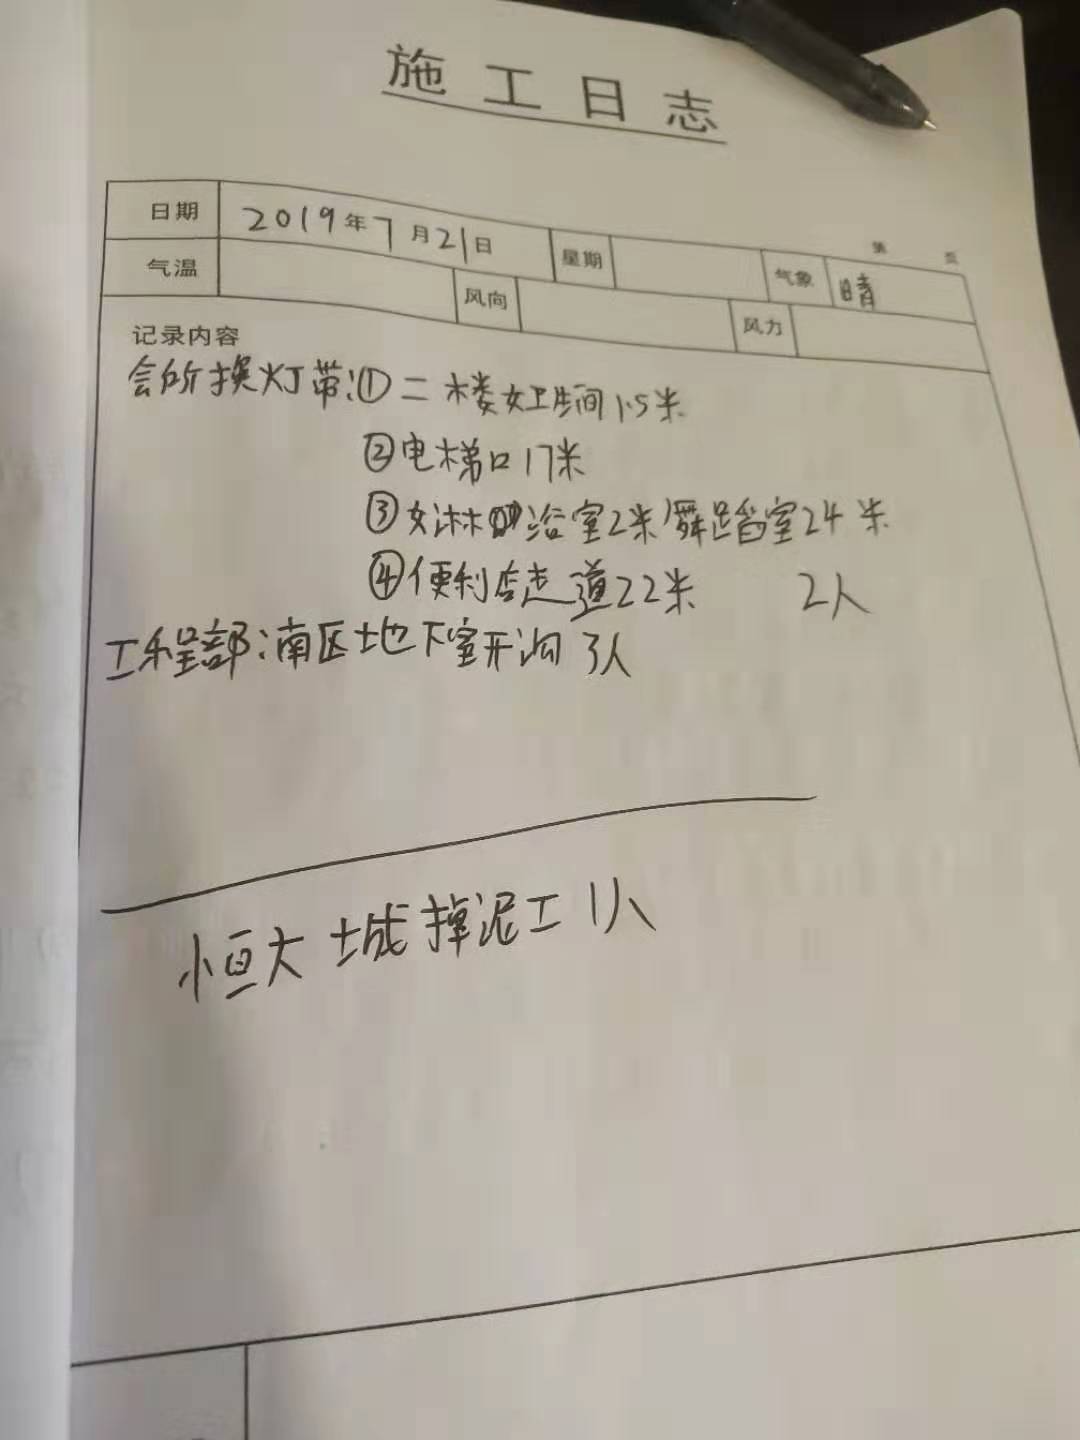 施工日志
第 页
日期 2019年7月21日 星期 气象 晴
气温 风向 风力
记录内容
会所换灯带:①二楼女卫生间1.5米
②电梯口17米
③女淋浴室2米/舞蹈室24米
④便利店走道22米 2人
工程部:南区地下室开沟 3人
恒大城掉泥工1人